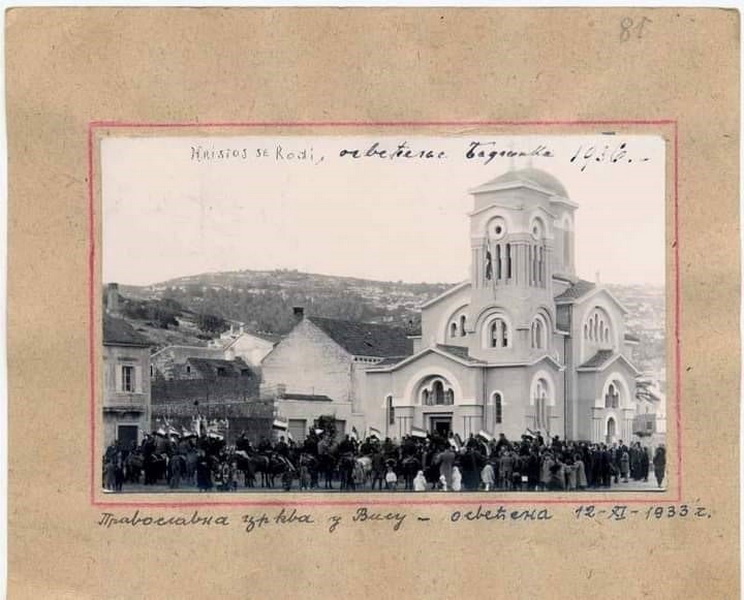 81
Hristos se Rodi, освећење Бадњака 1936.-
Православна црква у Вису – освећена 12-XI-1933 г.